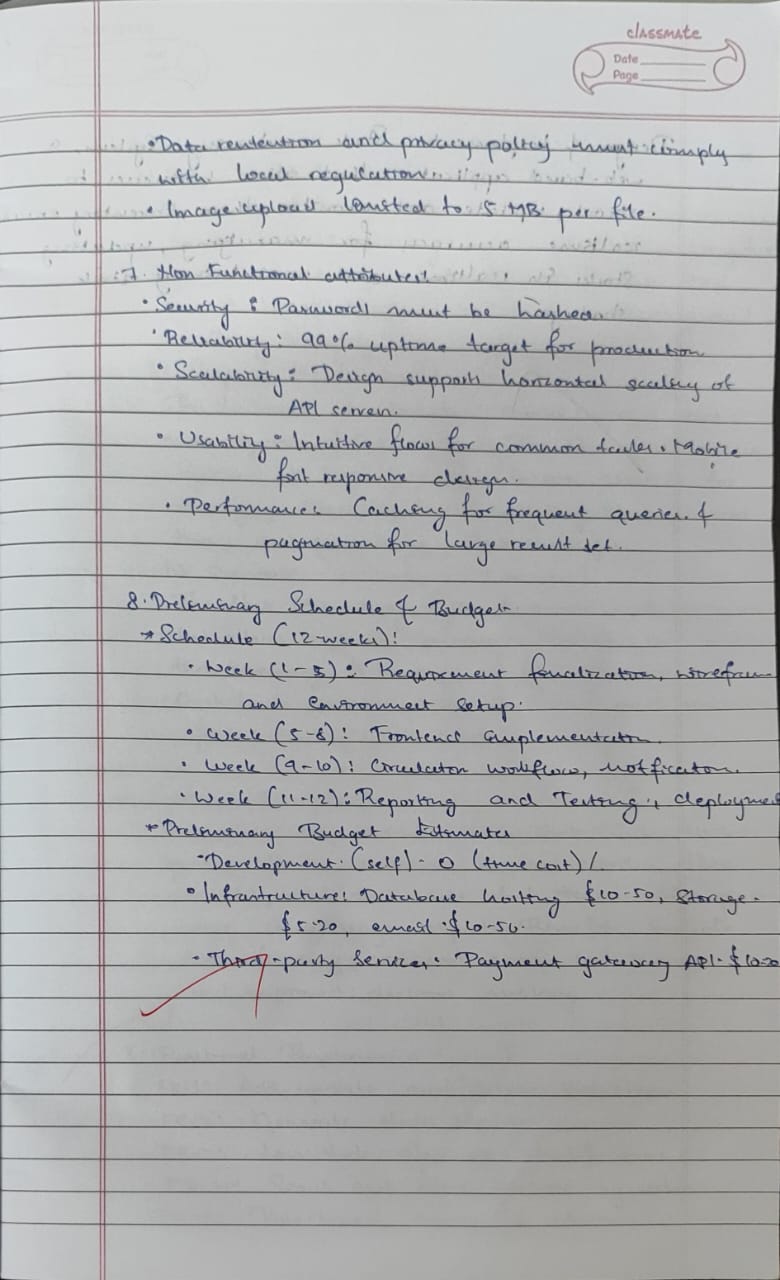 classmate
Date
Page
• Data retention and privacy policy must comply
with local regulation.
• Image upload limited to 5 MB per file.
7. Non Functional attributes:
• Security : Passwords must be hashed.
• Reliability: 99% uptime target for production
• Scalability: Design support horizontal scaling of
API server.
• Usability: Intuitive flows for common tasks. Mobile
font responsive design.
• Performance: Caching for frequent queries &
pagination for large result set.
8. Preliminary Schedule & Budget
* Schedule (12-weeks):
• Week (1-5): Requirement finalization, wirefram
and environment setup.
• Week (5-8): Frontend implementation
• Week (9-10): Circulation workflow, notification.
• Week (11-12): Reporting and Testing, deployment
* Preliminary Budget Estimates
• Development (self) - 0 (time cost)/.
• Infrastructure: Database hosting $10-50, Storage -
$5-20, email $10-50.
• Third-party Services: Payment gateway API- $10-